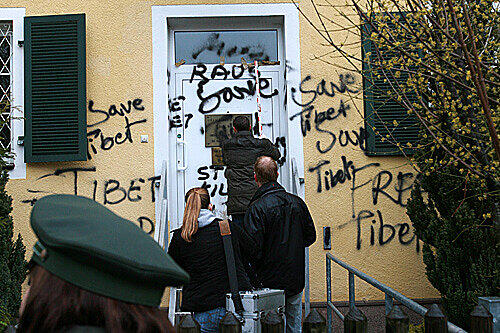 RAU
Save
Save
Tibet
TIBET
ST
KILL
Save
Tibet
Save
Tibet
FREE
Tibet